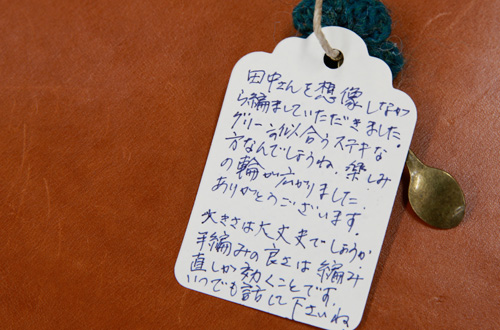 田中さんを想像しなが
ら編ましていただきました。
グリーンの似合うステキな
方なんでしょうね。楽しみ
の輪が広がりました。
ありがとうございます。
大きさは大丈夫でしょうか。
手編みの良さは編み
直しが効くことです。
いつでも話して下さいね